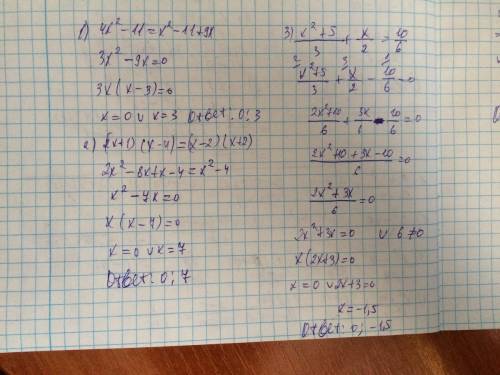 1) 4x² - 11 = x² - 11 + 9x
3x² - 9x = 0
3x(x - 3) = 0
x = 0 ∪ x = 3 Ответ: 0; 3
2) (2x+1)·(x-4) = (x-2)(x+2)
2x² - 8x + x - 4 = x² - 4
x² - 7x = 0
x(x - 7) = 0
x = 0 ∪ x = 7
Ответ: 0; 7
3) (x² + 5)/3 + x/2 = 10/6
(x² + 5)/3 + x/2 - 10/6 = 0
(2x² + 10)/6 + 3x/6 - 10/6 = 0
(2x² + 10 + 3x - 10)/6 = 0
(2x² + 3x)/6 = 0
2x² + 3x = 0 ∪ 6 ≠ 0
x(2x + 3) = 0
x = 0 ∪ 2x + 3 = 0
x = -1,5
Ответ: 0; -1,5